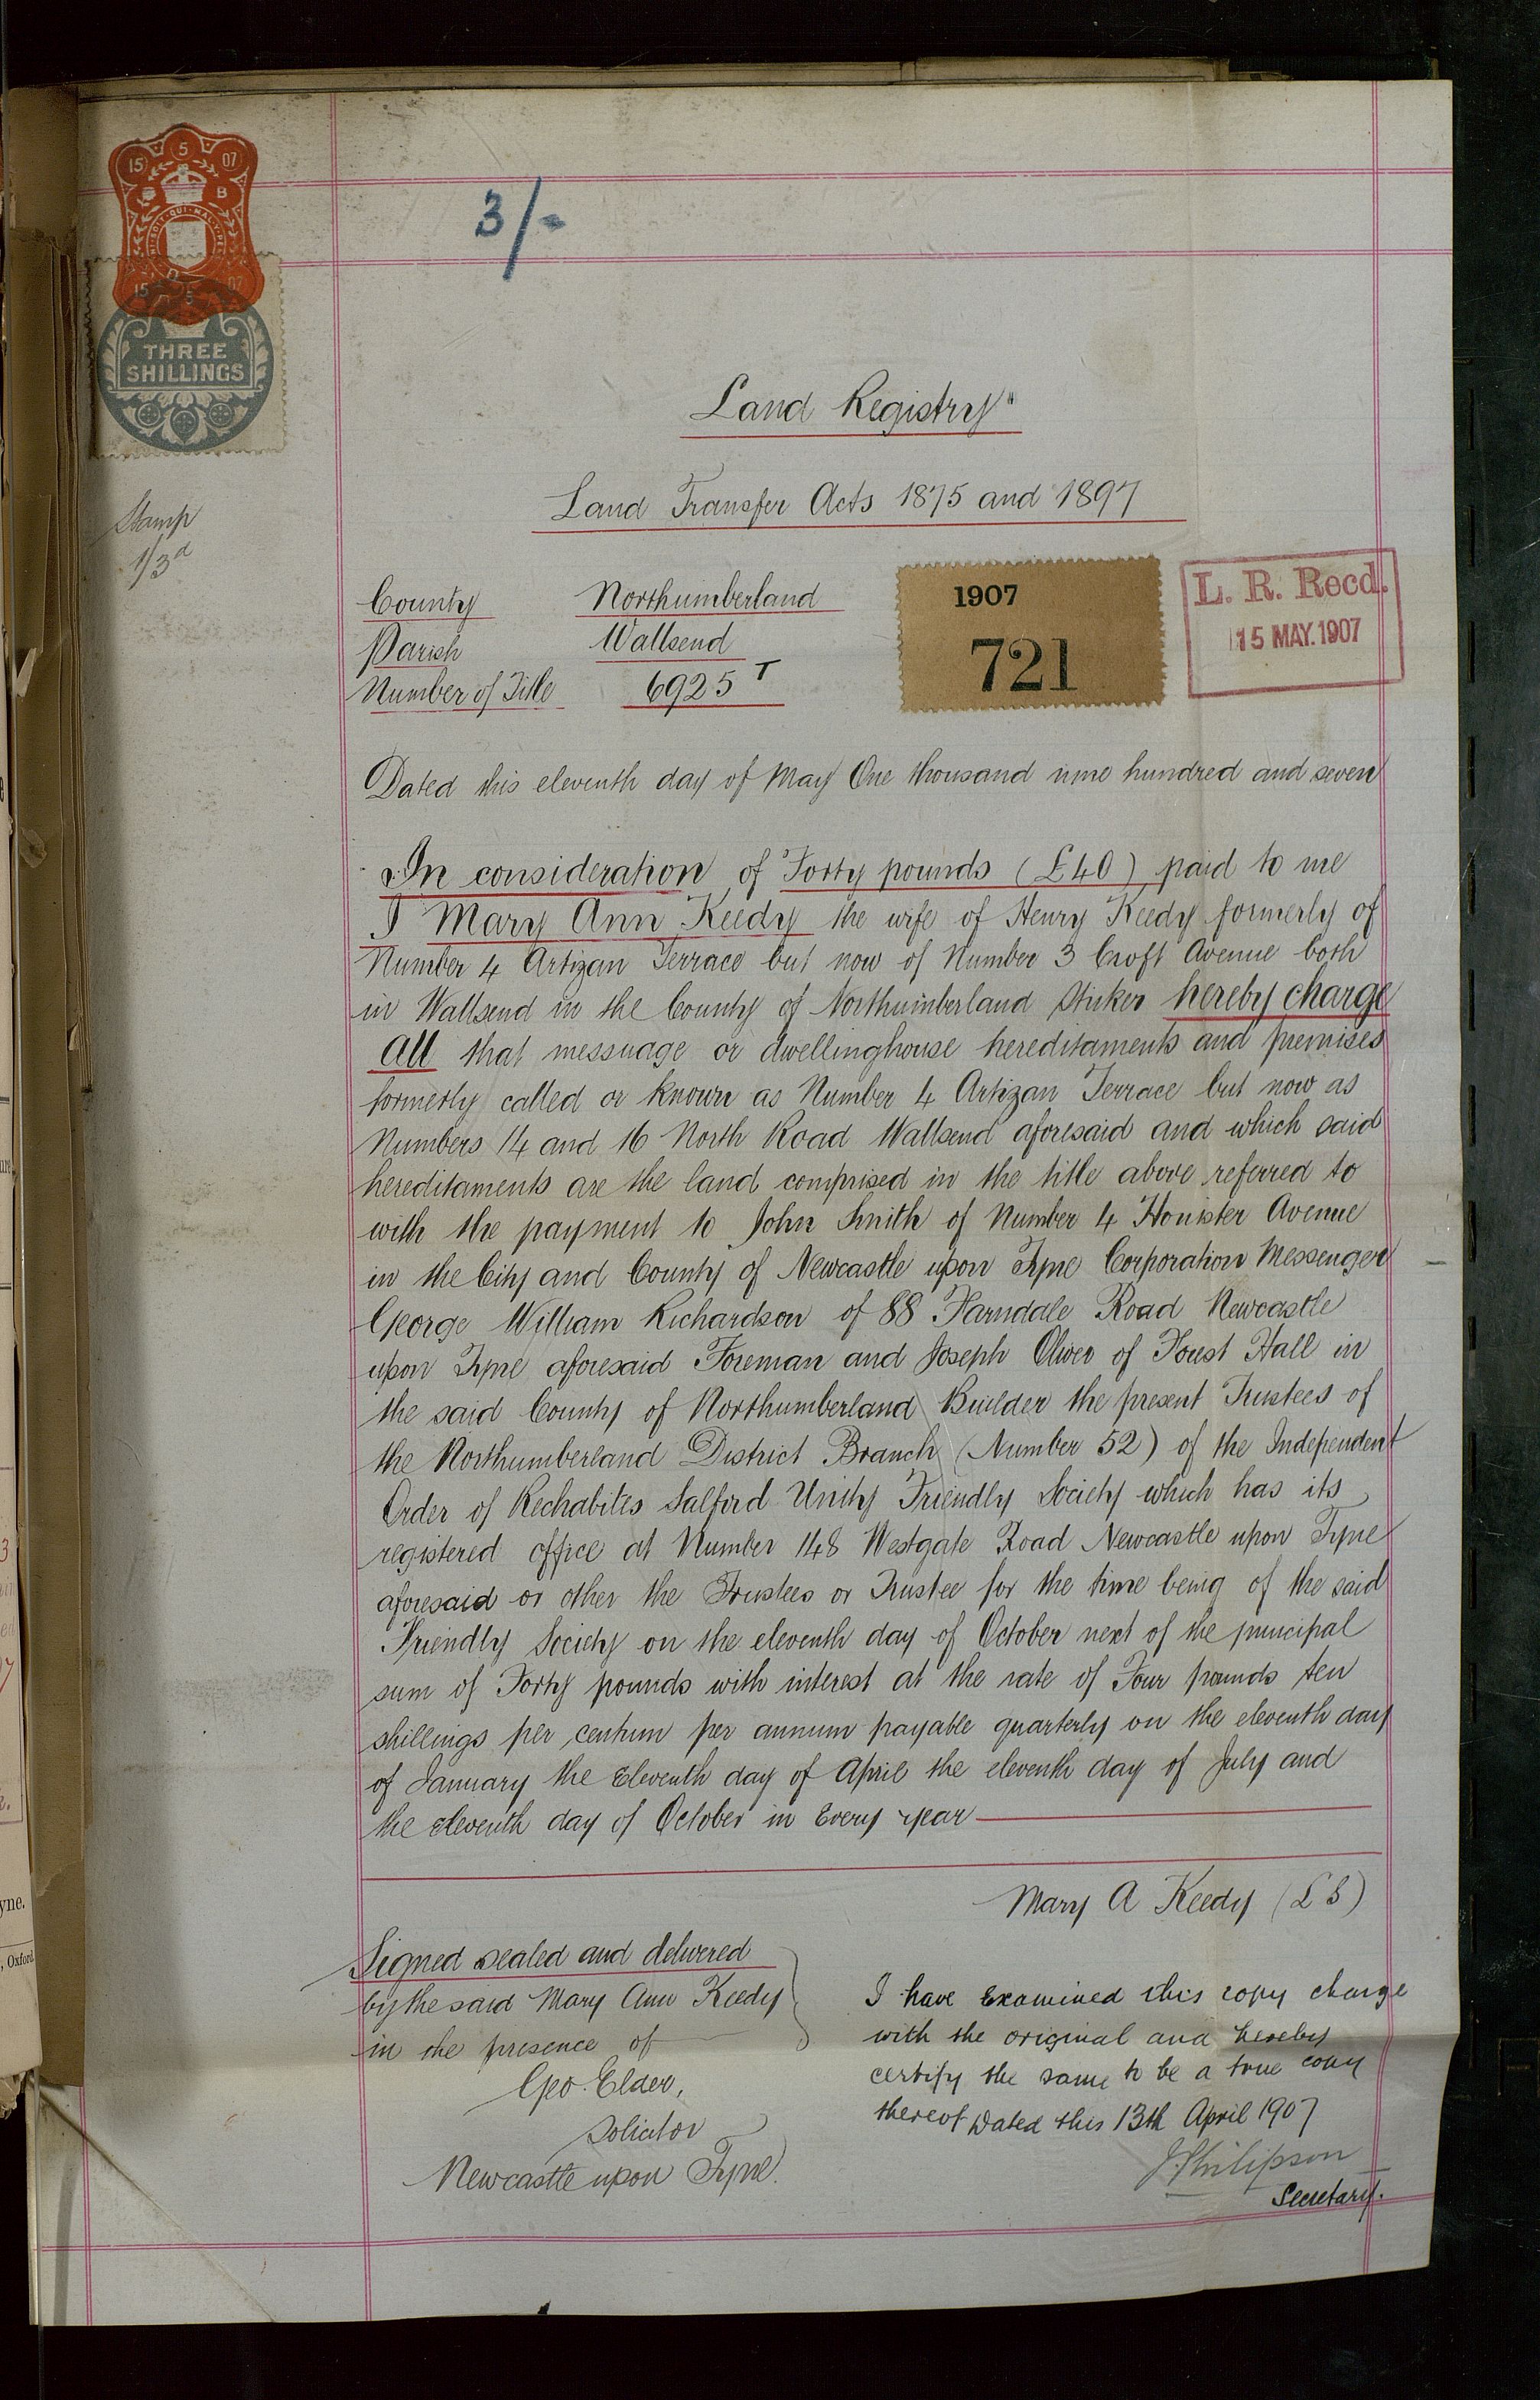 15 5 07
B
HONI·SOIT·QUI·MAL·Y·PENSE
15 5 07
THREE
SHILLINGS
3/-
Stamp
1/3d
Land Registry
Land Transfer Acts 1875 and 1897
County Northumberland
Parish Wallsend
Number of Title 6925 T
1907
721
L. R. Recd.
15 MAY. 1907
Dated this eleventh day of May One thousand nine hundred and seven
In consideration of Forty pounds (£40) paid to me
I Mary Ann Keedy the wife of Henry Keedy formerly of
Number 4 Artizan Terrace but now of Number 3 Croft Avenue both
in Wallsend in the County of Northumberland Striker hereby charge
All that messuage or dwellinghouse hereditaments and premises
formerly called or known as Number 4 Artizan Terrace but now as
Numbers 14 and 16 North Road Wallsend aforesaid and which said
hereditaments are the land comprised in the title above referred to
with the payment to John Smith of Number 4 Honister Avenue
in the City and County of Newcastle upon Tyne Corporation Messenger
George William Richardson of 88 Farndale Road Newcastle
upon Tyne aforesaid Foreman and Joseph Oliver of Forest Hall in
the said County of Northumberland Builder the present Trustees of
the Northumberland District Branch (Number 52) of the Independent
Order of Rechabites Salford Unity Friendly Society which has its
registered office at Number 148 Westgate Road Newcastle upon Tyne
aforesaid or other the Trustees or Trustee for the time being of the said
Friendly Society on the eleventh day of October next of the principal
sum of Forty pounds with interest at the rate of Four pounds ten
shillings per centum per annum payable quarterly on the eleventh day
of January the eleventh day of April the eleventh day of July and
the eleventh day of October in Every year
Mary A Keedy (LS)
Signed sealed and delivered
by the said Mary Ann Keedy
in the presence of
Geo. Elder,
Solicitor
Newcastle upon Tyne.
I have Examined this copy charge
with the original and hereby
certify the same to be a true copy
thereof Dated this 13th April 1907
J Philipson
Secretary.
yne.
, Oxford